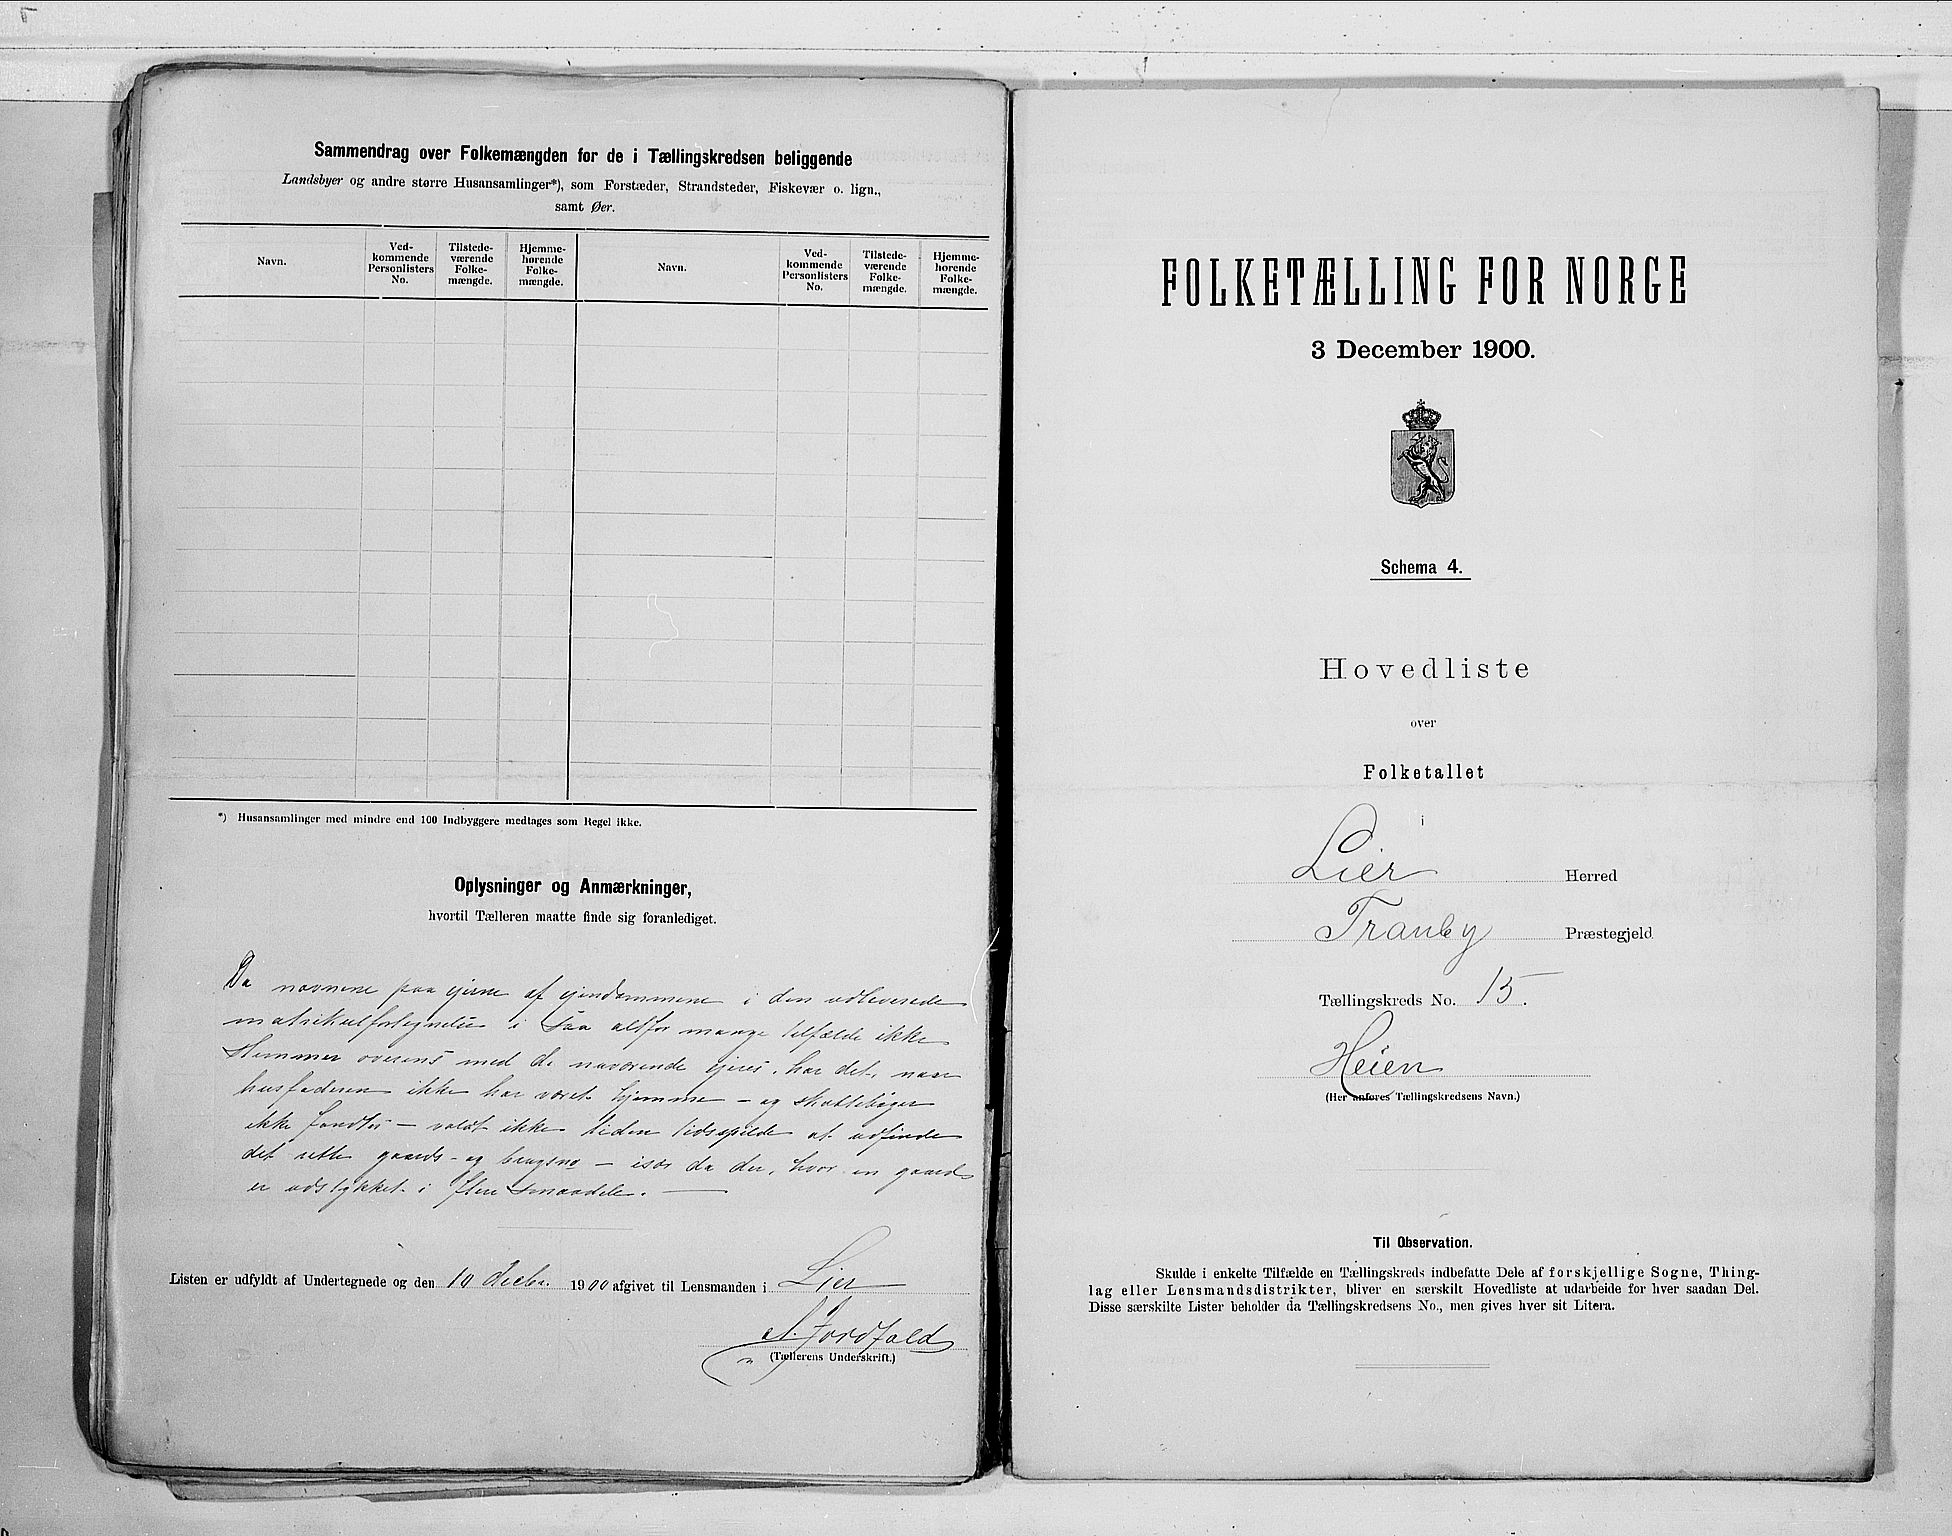 Sammendrag over Folkemængden for de i Tællingskredsen beliggende
Landsbyer og andre større Husansamlinger*), som Forstæder, Strandsteder, Fiskevær o. lign.,
samt Øer.
Navn. Ved-kommende Personlisters No. Tilstede-værende Folke-mængde. Hjemme-hørende Folke-mængde. Navn. Ved-kommende Personlisters No. Tilstede-værende Folke-mængde. Hjemme-hørende Folke-mængde.
*) Husansamlinger med mindre end 100 Indbyggere medtages som Regel ikke.
Oplysninger og Anmærkninger,
hvortil Tælleren maatte finde sig foranlediget.
Da navnene paa ejerne af ejendommene i den udleverede
matrikulfortegnelse i saa altfor mange tilfælde ikke
stemmer overens med de nuværende ejere, har det, naar
husfaderen ikke har været hjemme – og skattebøger
ikke fandtes – voldt ikke liden tidsspilde at udfinde
det rette gaards- og brugsno – især da der, hvor en gaard
er udstykket i flere smaadele. —
Listen er udfyldt af Undertegnede og den 10 decbr. 1900 afgivet til Lensmanden i Lier
A. Jordfald
(Tællerens Underskrift.)
FOLKETÆLLING FOR NORGE
3 December 1900.
Schema 4.
Hovedliste
over
Folketallet
i
Lier Herred
Tranby Præstegjeld
Tællingskreds No. 15.
Heien
(Her anføres Tællingskredsens Navn.)
Til Observation.
Skulde i enkelte Tilfælde en Tællingskreds indbefatte Dele af forskjellige Sogne, Thing-
lag eller Lensmandsdistrikter, bliver en særskilt Hovedliste at udarbeide for hver saadan Del.
Disse særskilte Lister beholder da Tællingskredsens No., men gives hver sit Litera.